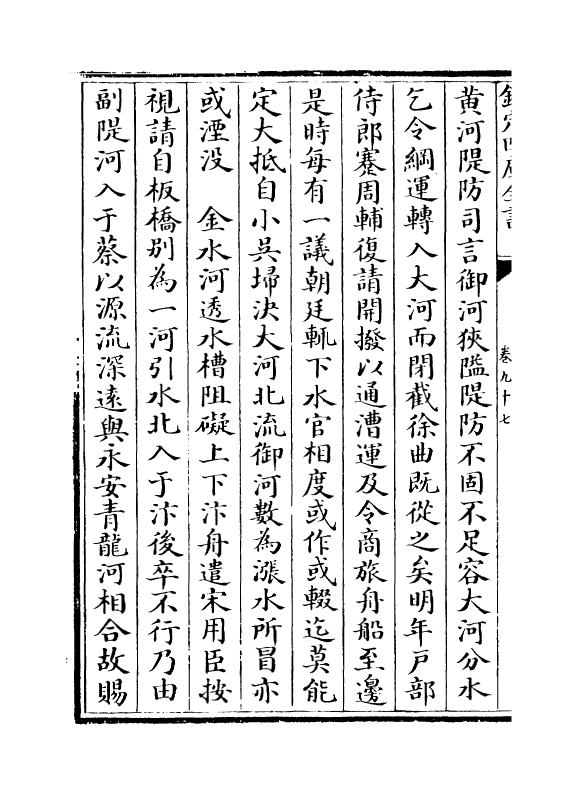 欽定四庫全書
卷九十七
黄河隄防司言御河狹隘隄防不固不足容大河分水
乞令綱運轉入大河而閉截徐曲既從之矣明年戸部
侍郎蹇周輔復請開撥以通漕運及令商旅舟船至邊
是時每有一議朝廷輒下水官相度或作或輟迄莫能
定大抵自小吳埽決大河北流御河數為漲水所冒亦
或湮没　金水河透水槽阻礙上下汴舟遣宋用臣按
視請自板橋别為一河引水北入于汴後卒不行乃由
副隄河入于蔡以源流深遠與永安青龍河相合故賜